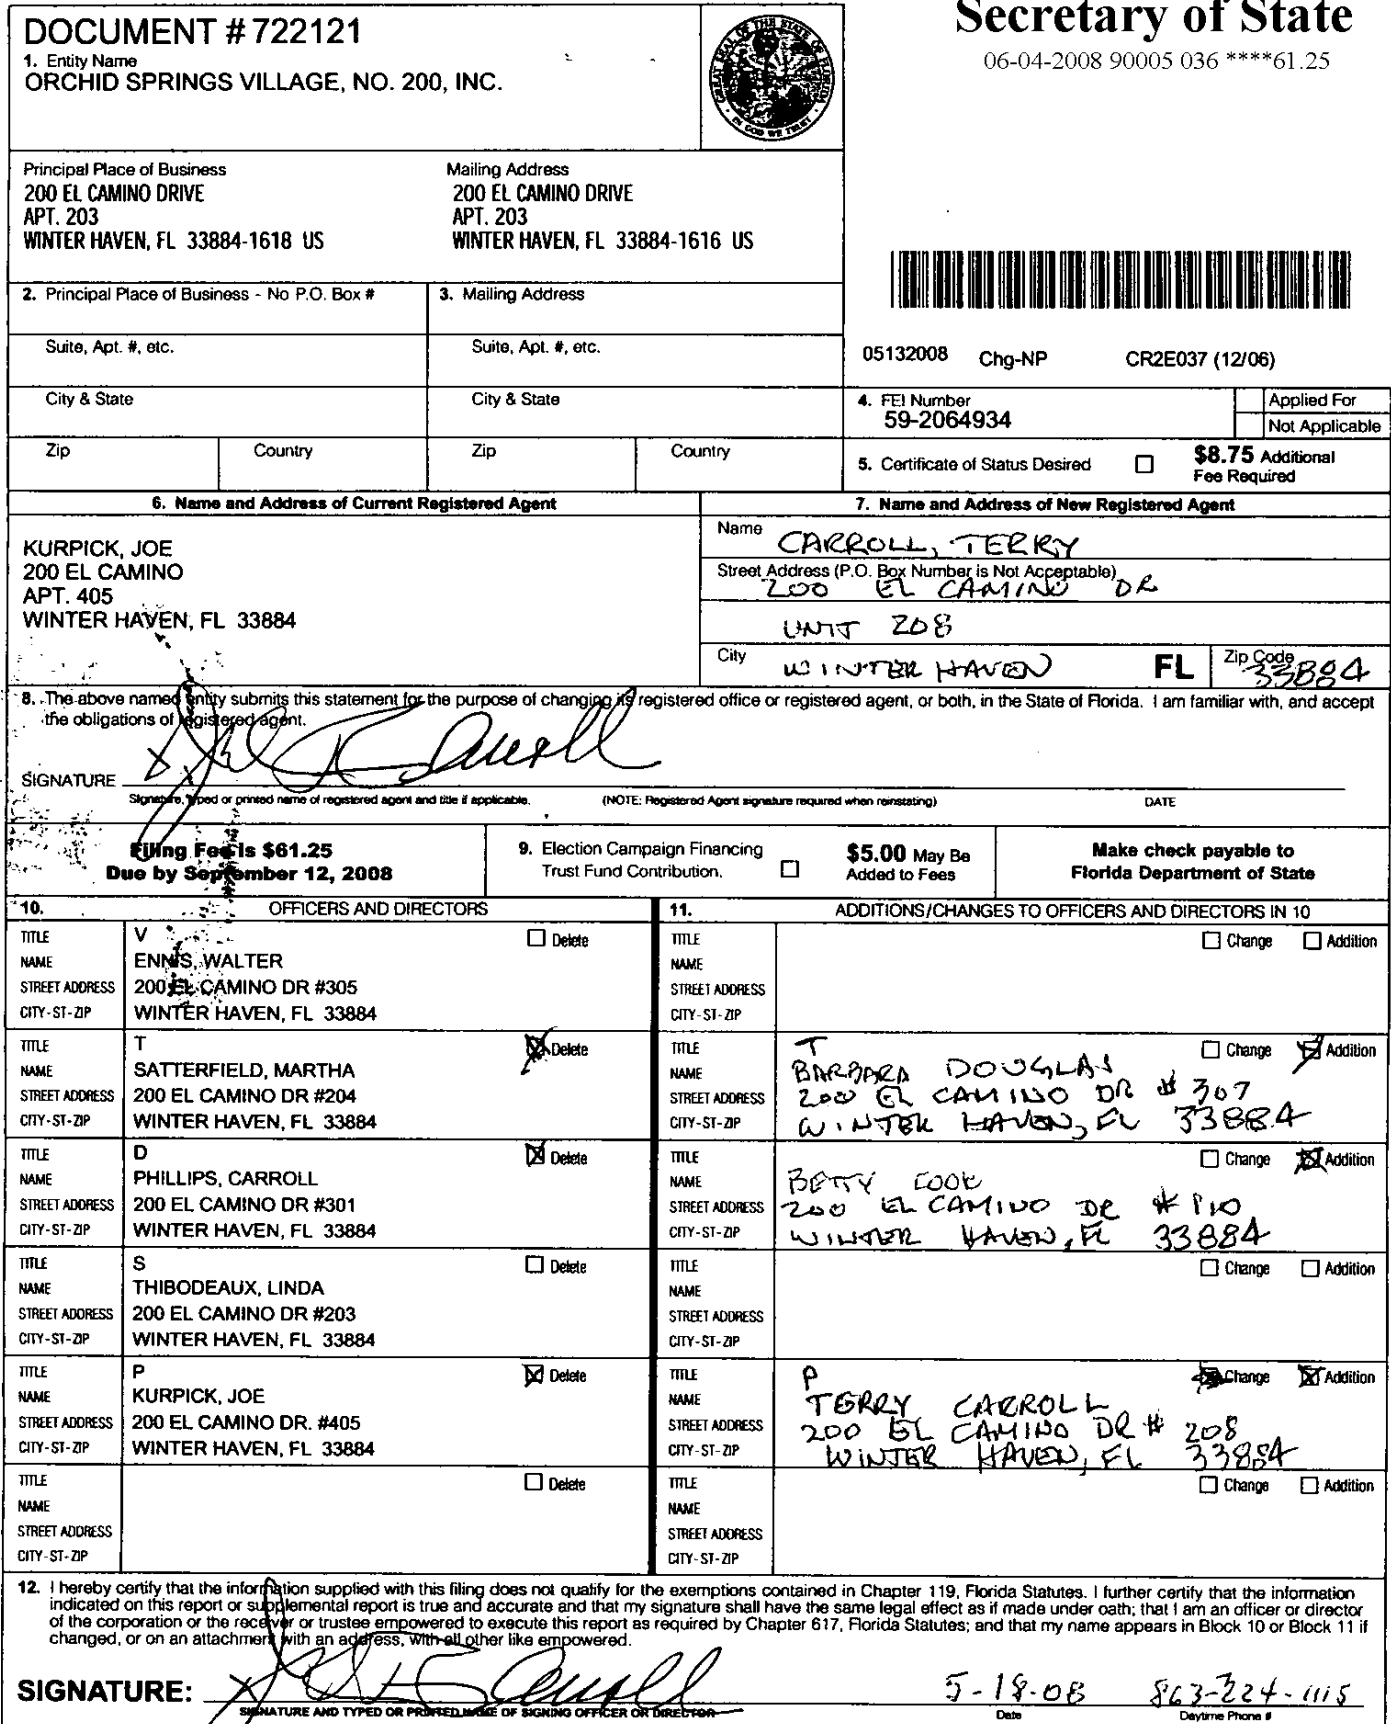 Secretary of State
06-04-2008 90005 036 ****61.25
DOCUMENT # 722121
1. Entity Name
ORCHID SPRINGS VILLAGE, NO. 200, INC.
Principal Place of Business
200 EL CAMINO DRIVE
APT. 203
WINTER HAVEN, FL 33884-1618 US
Mailing Address
200 EL CAMINO DRIVE
APT. 203
WINTER HAVEN, FL 33884-1616 US
2. Principal Place of Business - No P.O. Box #
3. Mailing Address
Suite, Apt. #, etc.
Suite, Apt. #, etc.
City & State
City & State
Zip Country
Zip Country
05132008 Chg-NP CR2E037 (12/06)
4. FEI Number
59-2064934
Applied For
Not Applicable
5. Certificate of Status Desired
$8.75 Additional
Fee Required
6. Name and Address of Current Registered Agent
KURPICK, JOE
200 EL CAMINO
APT. 405
WINTER HAVEN, FL 33884
7. Name and Address of New Registered Agent
Name CARROLL, TERRY
Street Address (P.O. Box Number is Not Acceptable)
200 EL CAMINO DR
UNIT 208
City WINTER HAVEN FL Zip Code 33884
8. The above named entity submits this statement for the purpose of changing its registered office or registered agent, or both, in the State of Florida. I am familiar with, and accept
the obligations of registered agent.
SIGNATURE
Signature, typed or printed name of registered agent and title if applicable. (NOTE: Registered Agent signature required when reinstating) DATE
Filing Fee is $61.25
Due by September 12, 2008
9. Election Campaign Financing
Trust Fund Contribution.
$5.00 May Be
Added to Fees
Make check payable to
Florida Department of State
10. OFFICERS AND DIRECTORS
11. ADDITIONS/CHANGES TO OFFICERS AND DIRECTORS IN 10
TITLE V Delete
NAME ENNIS, WALTER
STREET ADDRESS 200 EL CAMINO DR #305
CITY-ST-ZIP WINTER HAVEN, FL 33884
TITLE Change Addition
NAME
STREET ADDRESS
CITY-ST-ZIP
TITLE T Delete
NAME SATTERFIELD, MARTHA
STREET ADDRESS 200 EL CAMINO DR #204
CITY-ST-ZIP WINTER HAVEN, FL 33884
TITLE T Change Addition
NAME BARBARA DOUGLAS
STREET ADDRESS 200 EL CAMINO DR # 307
CITY-ST-ZIP WINTER HAVEN, FL 33884
TITLE D Delete
NAME PHILLIPS, CARROLL
STREET ADDRESS 200 EL CAMINO DR #301
CITY-ST-ZIP WINTER HAVEN, FL 33884
TITLE Change Addition
NAME BETTY COOK
STREET ADDRESS 200 EL CAMINO DR # 110
CITY-ST-ZIP WINTER HAVEN, FL 33884
TITLE S Delete
NAME THIBODEAUX, LINDA
STREET ADDRESS 200 EL CAMINO DR #203
CITY-ST-ZIP WINTER HAVEN, FL 33884
TITLE Change Addition
NAME
STREET ADDRESS
CITY-ST-ZIP
TITLE P Delete
NAME KURPICK, JOE
STREET ADDRESS 200 EL CAMINO DR. #405
CITY-ST-ZIP WINTER HAVEN, FL 33884
TITLE P Change Addition
NAME TERRY CARROLL
STREET ADDRESS 200 EL CAMINO DR # 208
CITY-ST-ZIP WINTER HAVEN, FL 33884
TITLE Delete
NAME
STREET ADDRESS
CITY-ST-ZIP
TITLE Change Addition
NAME
STREET ADDRESS
CITY-ST-ZIP
12. I hereby certify that the information supplied with this filing does not qualify for the exemptions contained in Chapter 119, Florida Statutes. I further certify that the information
indicated on this report or supplemental report is true and accurate and that my signature shall have the same legal effect as if made under oath; that I am an officer or director
of the corporation or the receiver or trustee empowered to execute this report as required by Chapter 617, Florida Statutes; and that my name appears in Block 10 or Block 11 if
changed, or on an attachment with an address, with all other like empowered.
SIGNATURE: 5-18-08 863-224-1115
SIGNATURE AND TYPED OR PRINTED NAME OF SIGNING OFFICER OR DIRECTOR Date Daytime Phone #